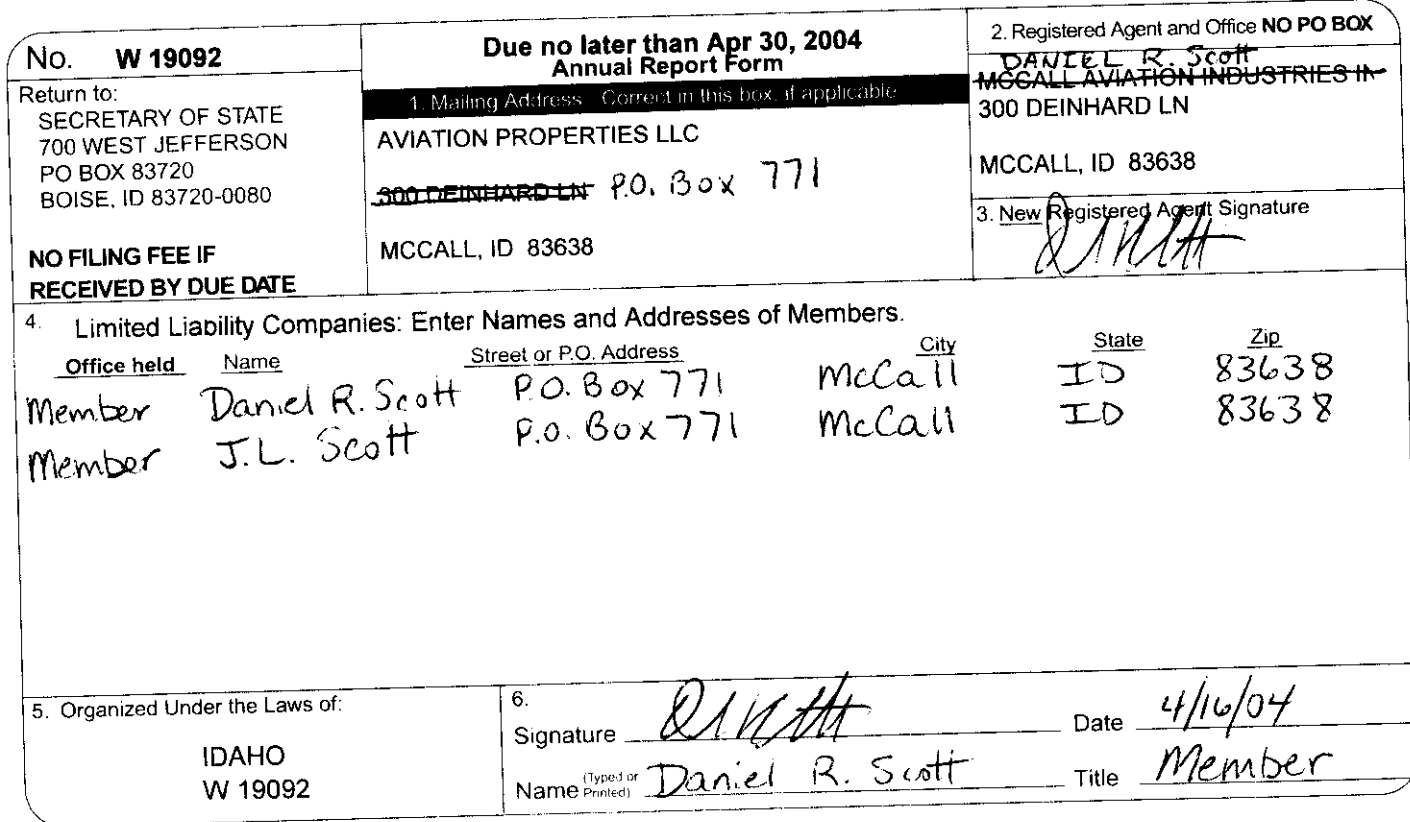 No. W 19092
Return to:
SECRETARY OF STATE
700 WEST JEFFERSON
PO BOX 83720
BOISE, ID 83720-0080
NO FILING FEE IF
RECEIVED BY DUE DATE
Due no later than Apr 30, 2004
Annual Report Form
1. Mailing Address Correct in this box, if applicable
AVIATION PROPERTIES LLC
300 DEINHARD LN P.O. Box 771
MCCALL, ID 83638
2. Registered Agent and Office NO PO BOX
DANIEL R. Scott
MCCALL AVIATION INDUSTRIES IN
300 DEINHARD LN
MCCALL, ID 83638
3. New Registered Agent Signature
4. Limited Liability Companies: Enter Names and Addresses of Members.
Office held Name Street or P.O. Address City State Zip
Member Daniel R. Scott P.O. Box 771 McCall ID 83638
Member J.L. Scott P.O. Box 771 McCall ID 83638
5. Organized Under the Laws of:
IDAHO
W 19092
6.
Signature Date 4/16/04
Name (Typed or Printed) Daniel R. Scott Title Member